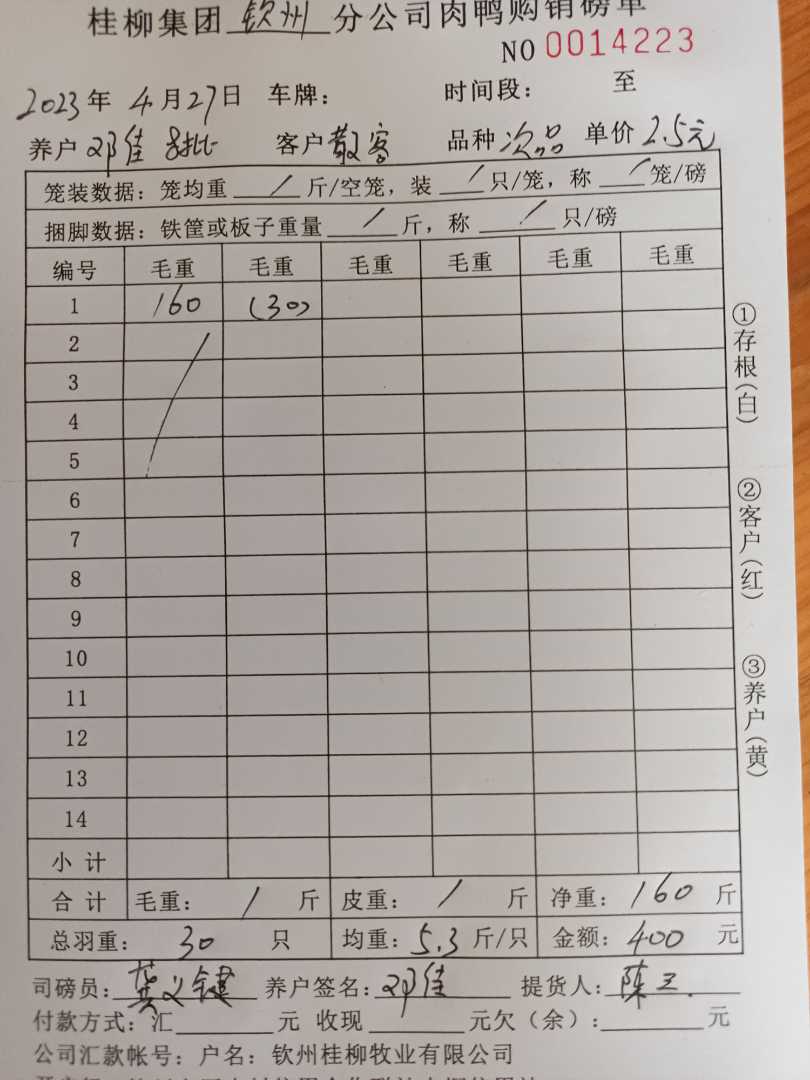 桂柳集团 钦州 分公司肉鸭购销磅单
NO 0014223
2023年 4月27日 车牌: 时间段: 至
养户 邓佳 客户 散客 品种 次品 单价 2.5元
笼装数据: 笼均重 / 斤/空笼, 装 / 只/笼, 称 / 笼/磅
捆脚数据: 铁筐或板子重量 / 斤, 称 / 只/磅
编号 毛重 毛重 毛重 毛重 毛重 毛重
1 160 (30)
2
3
4
5
6
7
8
9
10
11
12
13
14
小计
合计 毛重: / 斤 皮重: / 斤 净重: 160 斤
总羽重: 30 只 均重: 5.3 斤/只 金额: 400 元
司磅员: 龚义键 养户签名: 邓佳 提货人: 陈三.
付款方式: 汇 元 收现 元欠(余): 元
公司汇款帐号: 户名: 钦州桂柳牧业有限公司
①存根(白)
②客户(红)
③养户(黄)